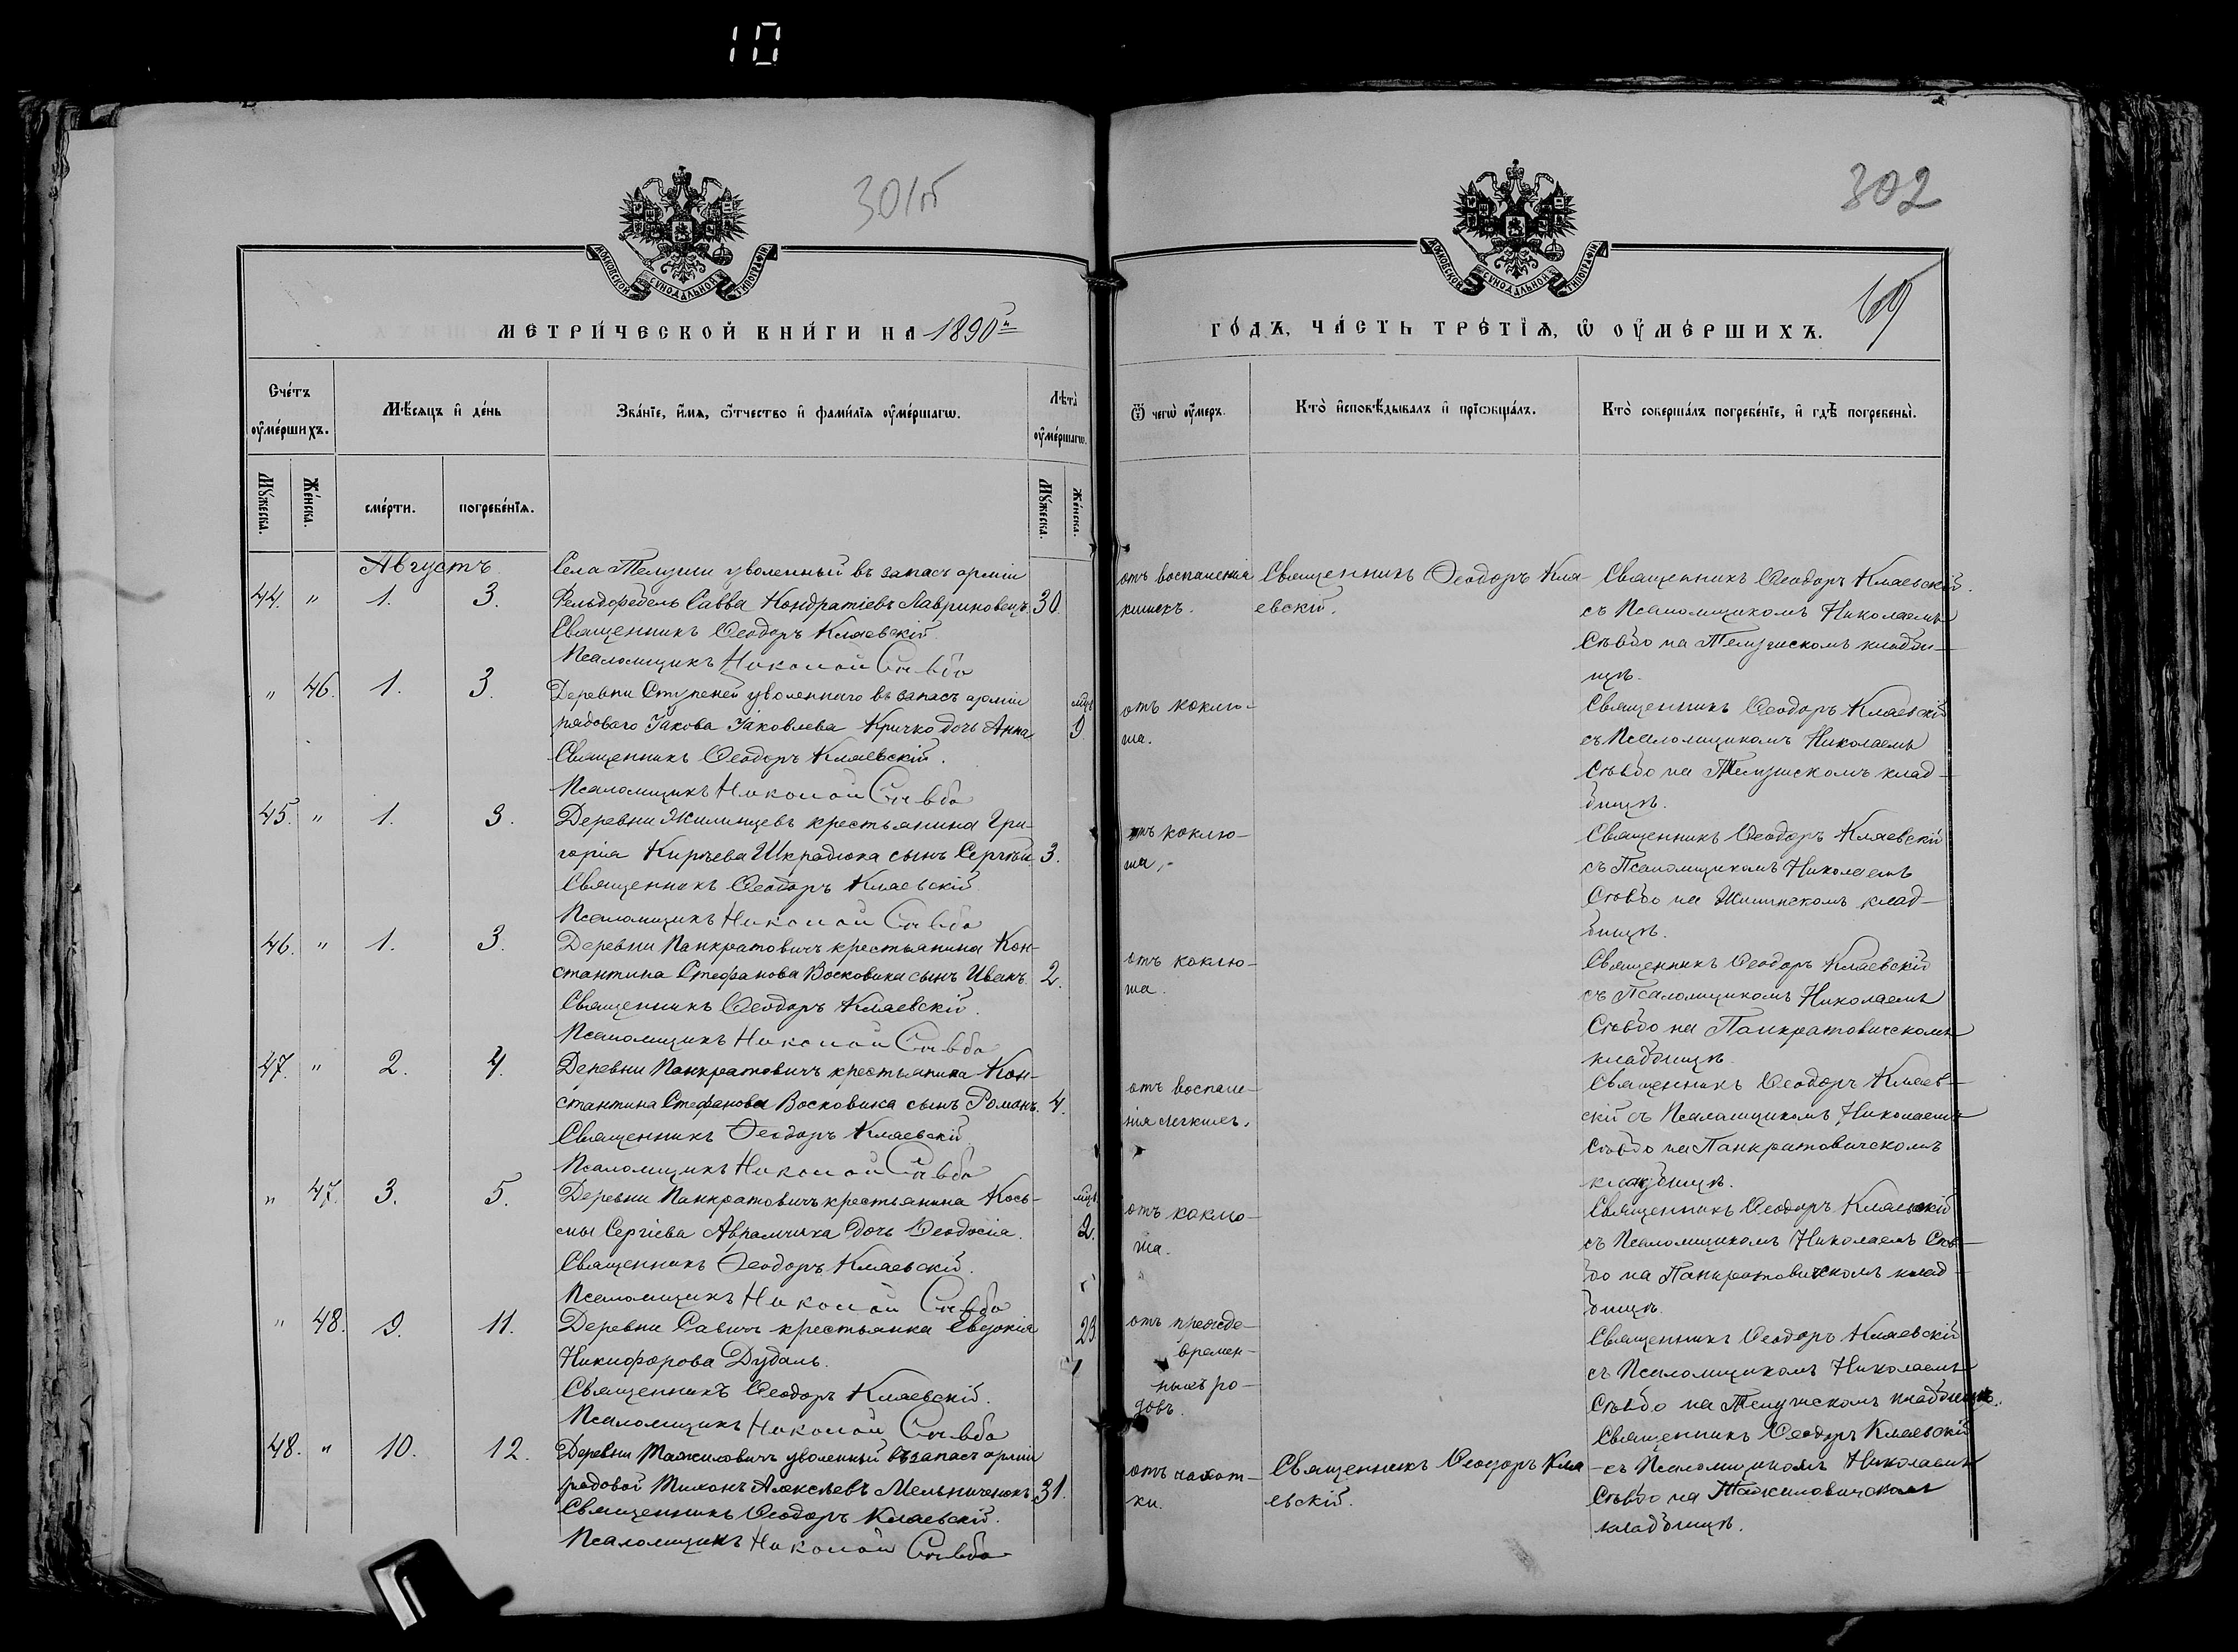 10
301об
302
69
МОСКОВСКОЙ СѴНОДАЛЬНОЙ ТИПОГРАФІИ
МОСКОВСКОЙ СѴНОДАЛЬНОЙ ТИПОГРАФІИ
МЕТРИ́ЧЕСКОЙ КНИ́ГИ НА 1890й
ГО́ДЪ, ЧА́СТЬ ТРЕ́ТІѦ, Ѡ ОУ҆МЕ́РШИХЪ.
Сче́тъ оу҆ме́ршихъ.
Мѣ́сѧцъ и҆ де́нь
Зва́нїе, и҆́мѧ, ѻ҆́тчество и҆ фами́лїѧ оу҆ме́ршагѡ.
Лѣ́та оу҆ме́ршагѡ.
Ѿ чегѡ̀ оу҆́меръ.
Кто̀ и҆сповѣ́дывалъ и҆ прїѡбща́лъ.
Кто̀ соверша́лъ погребе́нїе, и҆ гдѣ̀ погребены̀.
Мꙋ́жеска.
Же́нска.
сме́рти.
погребе́нїѧ.
Мꙋ́жеска.
Же́нска.
Августъ
44. " 1. 3.
Села Телуши уволенный въ запасъ арміи
Фельдфебель Савва Кондратіевъ Лавриновецъ 30.
Священникъ Ѳеодоръ Кляевскій
Псаломщикъ Николай Съвбо
отъ воспаленія
кишекъ.
Священникъ Ѳеодоръ Кля-
евскій.
Священникъ Ѳеодоръ Кляевскій.
съ Псаломщикомъ Николаемъ
Съвбо на Телушскомъ кладби-
щѣ.
" 46. 1. 3.
Деревни Ступеней уволеннаго въ запасъ арміи
рядоваго Іакова Іаковлева Кричко дочь Анна
мцъ 9
Священникъ Ѳеодоръ Кляевскій.
Псаломщикъ Николай Съвбо
отъ коклю-
ша.
Священникъ Ѳеодоръ Кляевскій
съ Псаломщикомъ Николаемъ
Съвбо на Телушскомъ клад-
бищѣ.
45. " 1. 3.
Деревни Жилинцевъ крестьянина Гри-
горія Киръева Шкрадюка сынъ Сергѣй 3.
Священникъ Ѳеодоръ Кляевскій
Псаломщикъ Николай Съвбо
отъ коклю-
ша.
Священникъ Ѳеодоръ Кляевскій
съ Псаломщикомъ Николаемъ
Съвбо на Жилинскомъ клад-
бищѣ.
46. " 1. 3.
Деревни Панкратовичъ крестьянина Кон-
стантина Стефанова Восковика сынъ Иванъ 2.
Священникъ Ѳеодоръ Кляевскій.
Псаломщикъ Николай Съвбо
отъ коклю-
ша.
Священникъ Ѳеодоръ Кляевскій
съ Псаломщикомъ Николаемъ
Съвбо на Панкратовичскомъ
кладбищѣ.
47. " 2. 4.
Деревни Панкратовичъ крестьянина Кон-
стантина Стефанова Восковика сынъ Романъ. 4.
Священникъ Ѳеодоръ Кляевскій.
Псаломщикъ Николай Съвбо
отъ воспале-
нія легкихъ.
Священникъ Ѳеодоръ Кляев-
скій съ Псаломщикомъ Николаемъ
Съвбо на Панкратовичскомъ
кладбищѣ.
" 47. 3. 5.
Деревни Панкратовичъ крестьянина Кось-
мы Сергіева Аврамчика дочь Ѳеодосія.
мцъ 2.
Священникъ Ѳеодоръ Кляевскій.
Псаломщикъ Николай Съвбо
отъ коклю-
ша.
Священникъ Ѳеодоръ Кляевскій
съ Псаломщикомъ Николаемъ Съв-
бо на Панкратовичскомъ клад-
бищѣ.
" 48. 9. 11.
Деревни Савичъ крестьянка Евдокія 23
Никифорова Дудаль.
Священникъ Ѳеодоръ Кляевскій.
Псаломщикъ Николай Съвбо
отъ прежде-
времен-
ныхъ ро-
довъ.
Священникъ Ѳеодоръ Кляевскій
съ Псаломщикомъ Николаемъ
Съвбо на Телушскомъ кладбищѣ.
48. " 10. 12.
Деревни Тажиловичъ уволенный въ запасъ арміи
рядовой Тихонъ Алексѣевъ Мельниченокъ 31.
Священникъ Ѳеодоръ Кляевскій.
Псаломщикъ Николай Съвбо
отъ чахот-
ки.
Священникъ Ѳеодоръ Кля
евскій.
Священникъ Ѳеодоръ Кляевскій
съ Псаломщикомъ Николаемъ
Съвбо на Тажиловичскомъ
кладбищѣ.